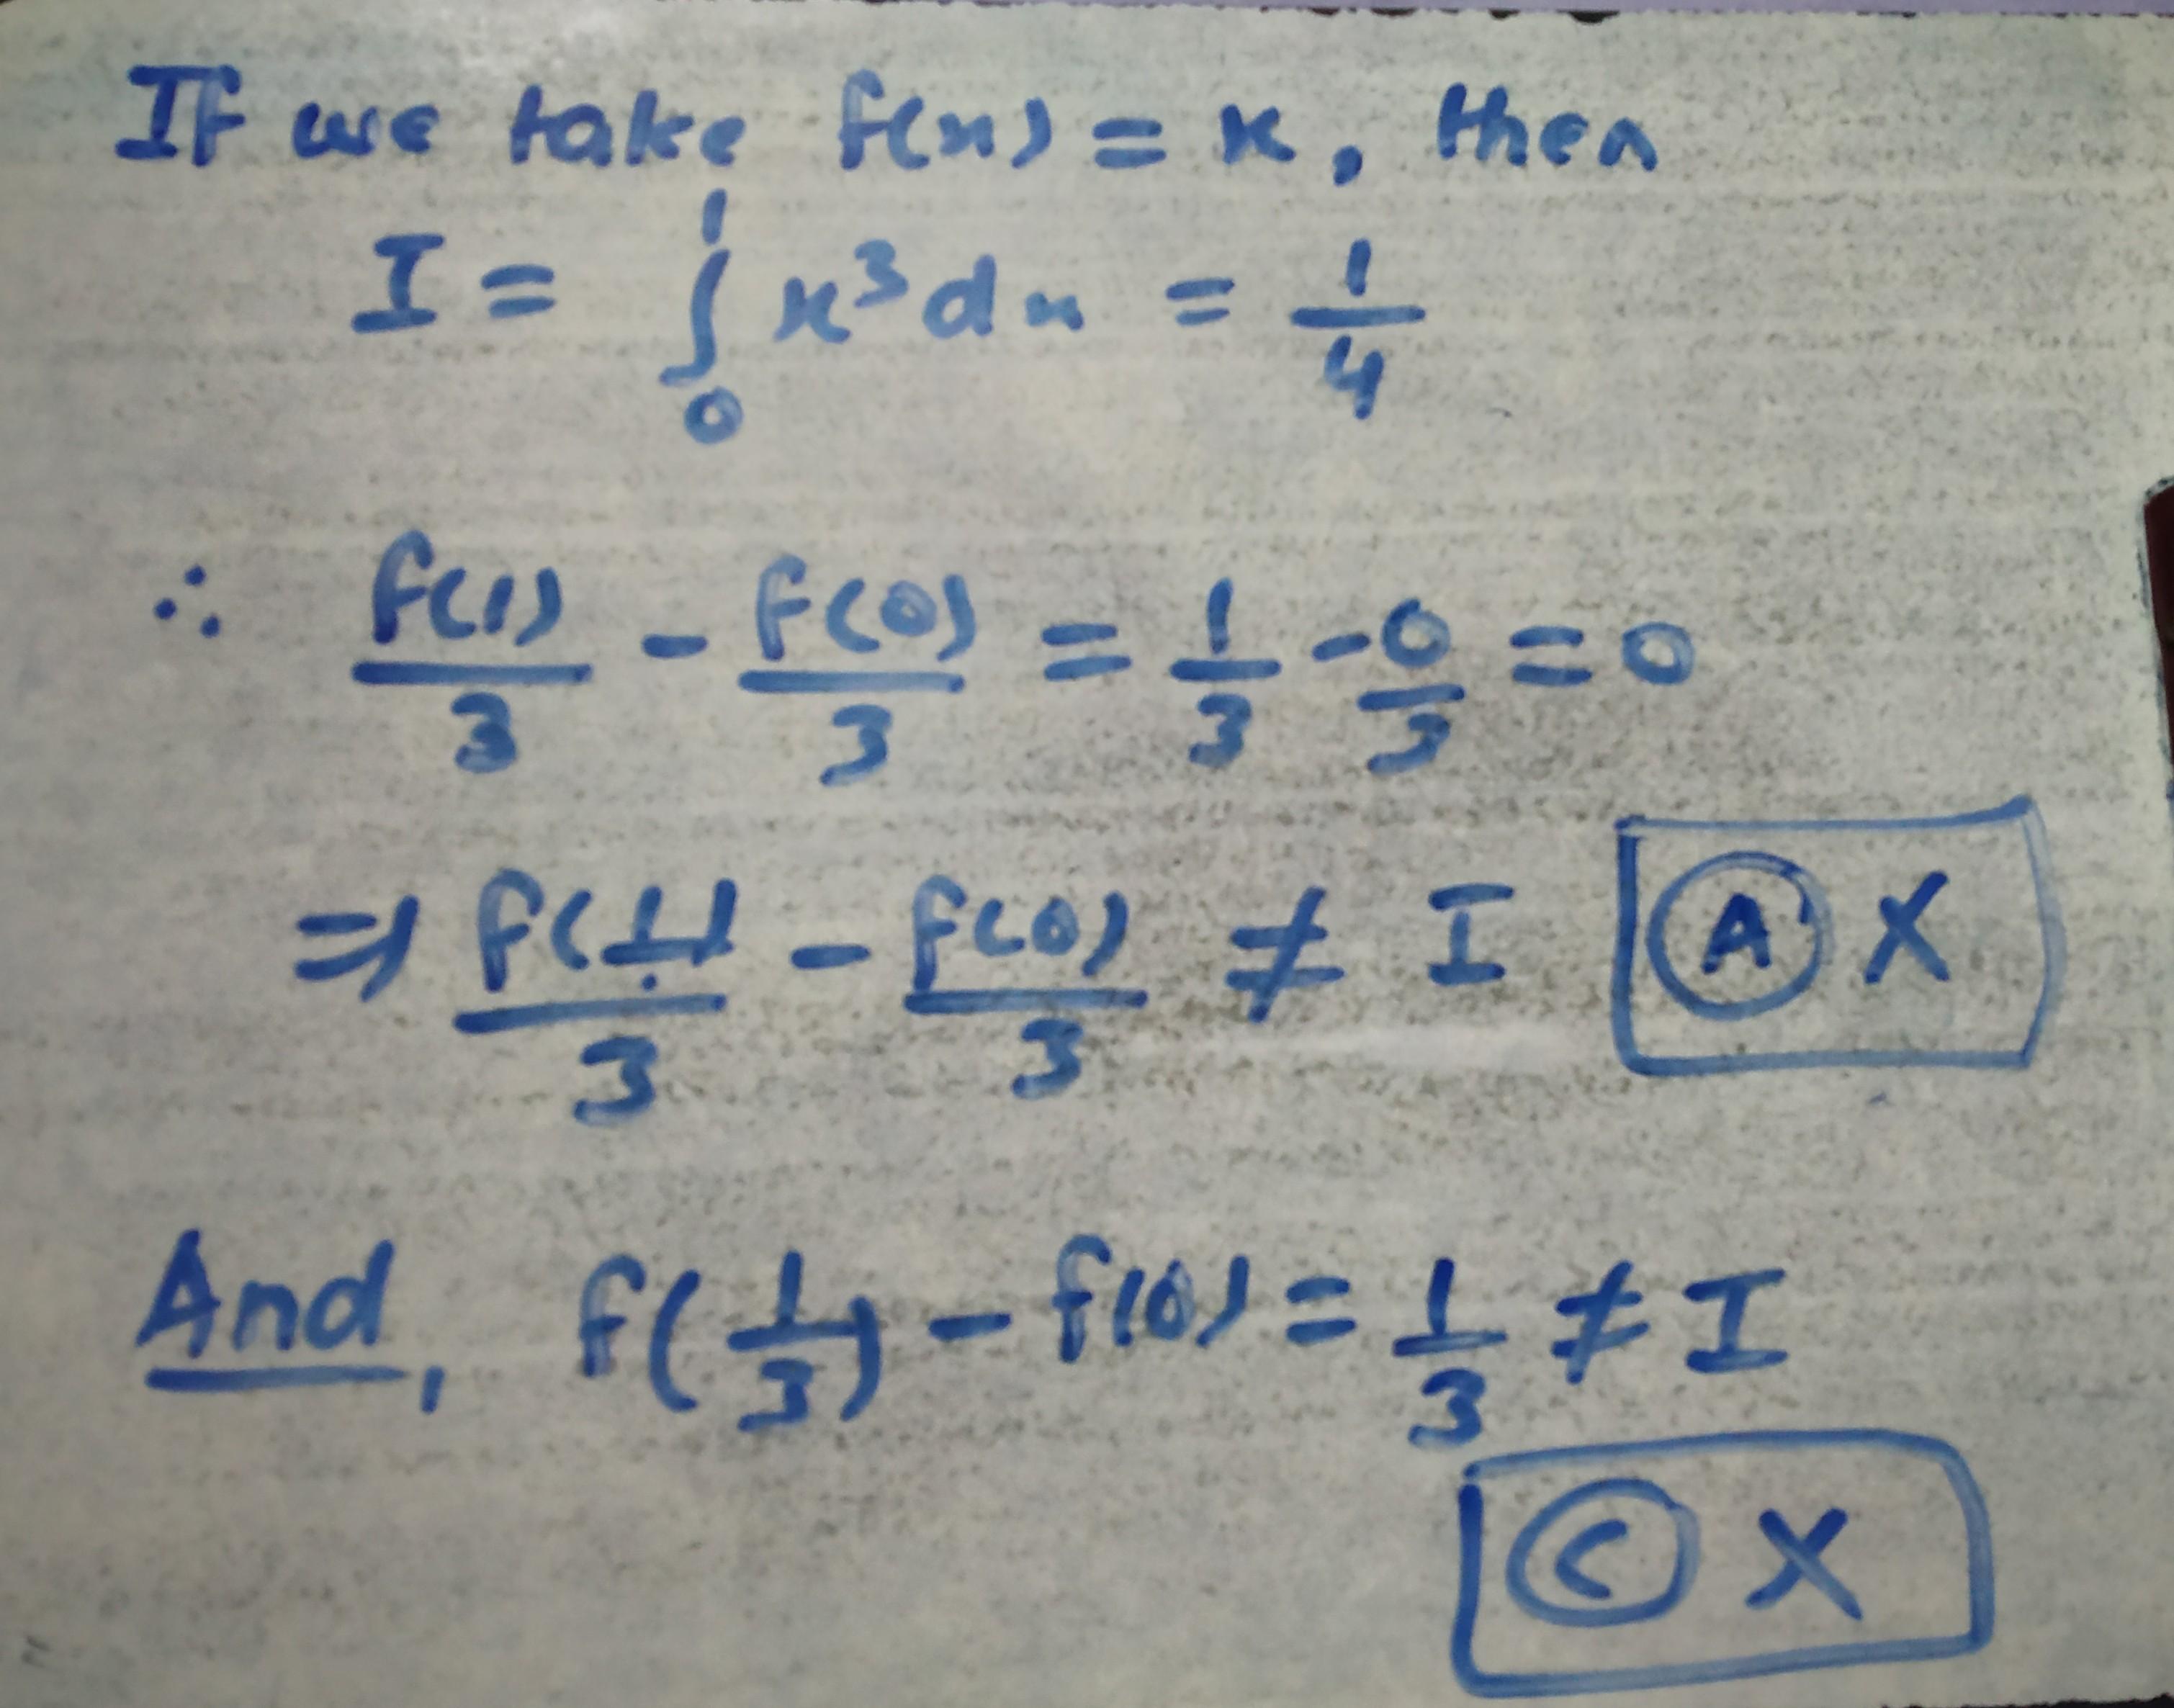 If we take f(x) = x, then
I = ∫₀¹ x³ dx = 1/4
∴ f(1)/3 - f(0)/3 = 1/3 - 0/3 = 0
⇒ f(1)/3 - f(0)/3 ≠ I Ⓐ X
And, f(1/3) - f(0) = 1/3 ≠ I
Ⓒ X